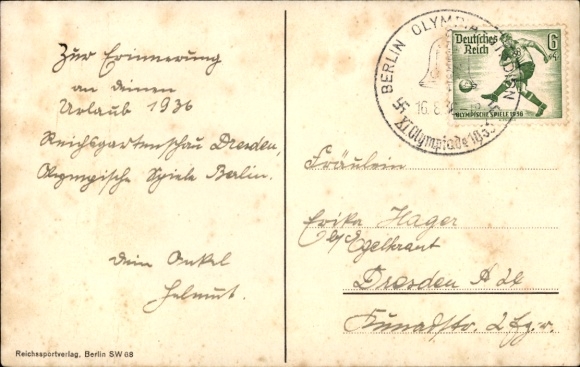 Zur Erinnerung
an deinen
Urlaub 1936
Reichsgartenschau Dresden,
Olympische Spiele Berlin.
Dein Onkel
Helmut.
Reichssportverlag, Berlin SW 68
BERLIN OLYMPIA-STADION
16.8.
XI. Olympiade 1936
Deutsches
Reich
6
OLYMPISCHE SPIELE 1936
Fräulein
Erika Hager
b/ Egelkraut
Dresden A 24
Kunadstr. 2 Eg. r.